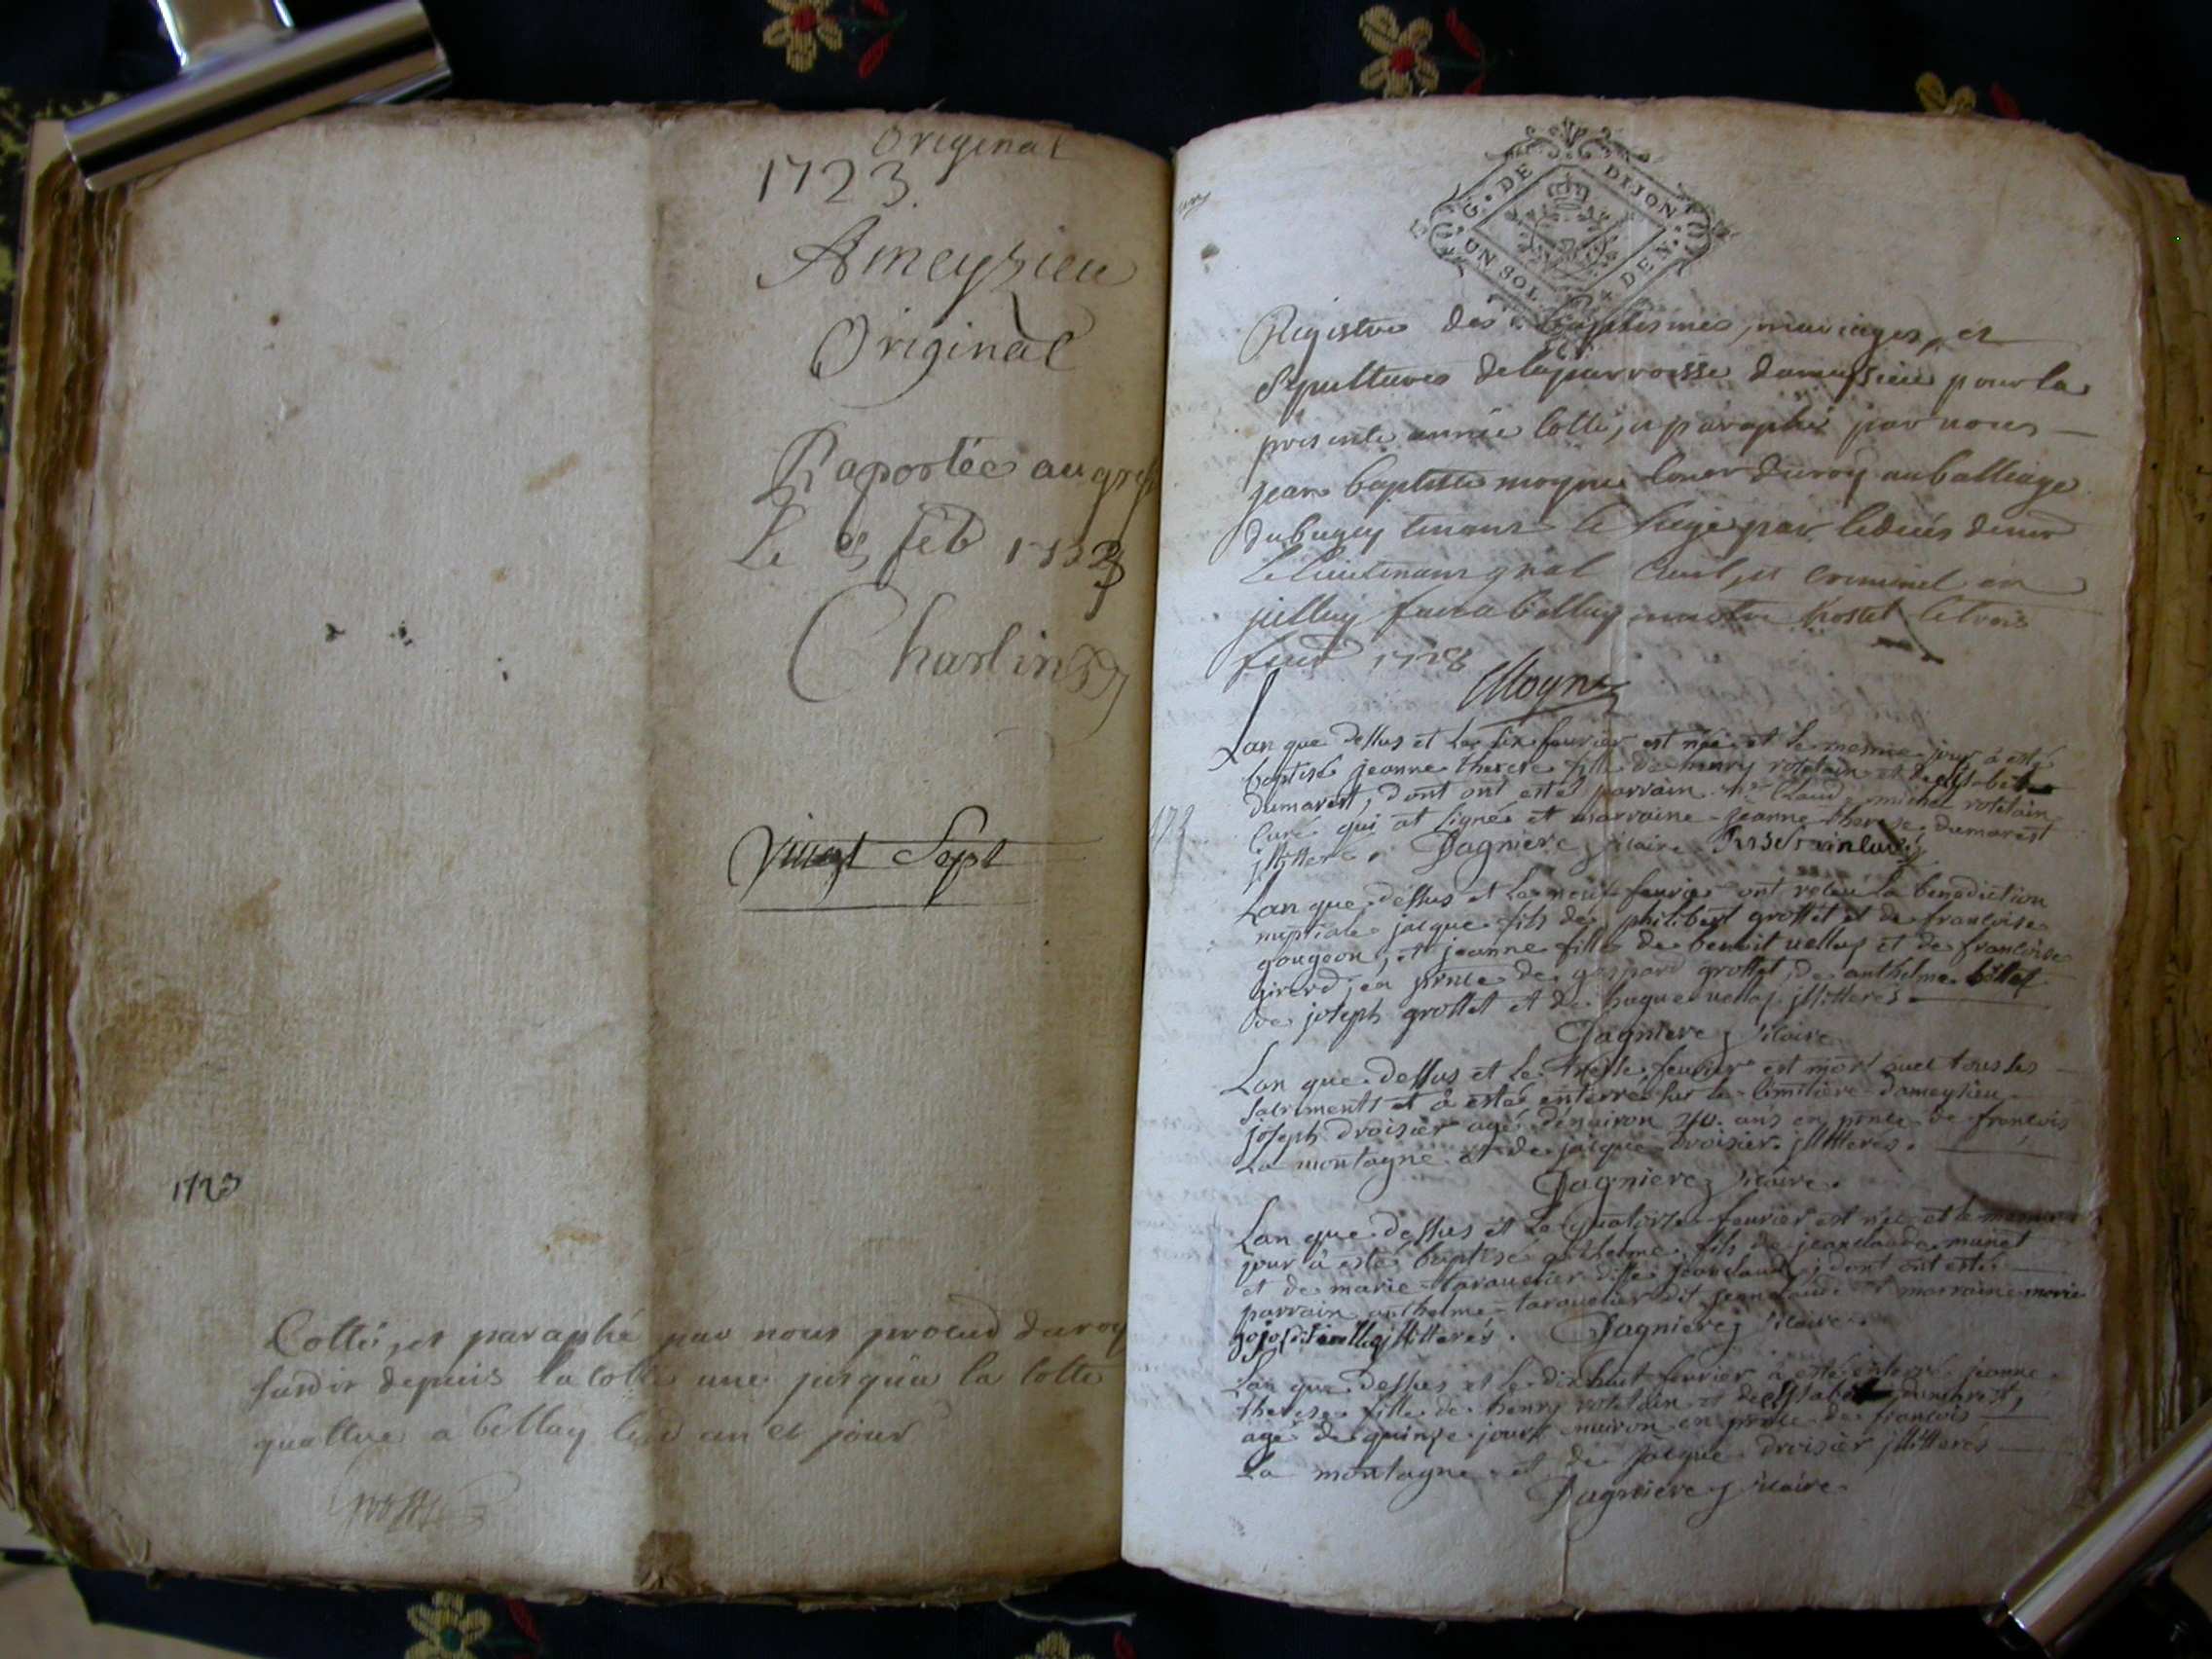 Original
1723
Ameyzieu
Original
Raportée au gref
Le 8 feb
Charlin
Vingt Sept
1723
Cotté, et paraphé par nous procud du roy
susdit depuis la cotte une jusqu'a la cotte
quattre a bellay lesd an et jour
G. DE DIJON
UN SOL DEN.
Registre des baptesmes, mariages, et
Sepultures de la parroisse dameysieu pour la
presente année Cotté, et paraphé par nous
jean baptiste moyne du roy au balliage
du bugey tenant le siege par le deces de mr
Le lieutenant gnal Civil, et Criminel en
fait a bellay en notre hostel le trois
Moyne
Lan que dessus et le six feurier est née et le mesme jour à esté
baptisé jeanne therese fille de henry rostain et de
dumarest, dont ont esté parrain mre Claude michel rostain
Curé qui at signé et marraine jeanne therese dumarest
jllittere. Dagniere vicaire
Lan que dessus et le neuf feurier ont receu la benediction
nuptiale jacque fils de philibert grottet et de francoise
gougeon, et jeanne fille de benoit vellas et de francoise
girerd, en pnce de gaspard grottet, de anthelme
de joseph grottet et de hugue vellas jllitteres.
Dagniere vicaire
Lan que dessus et le treise feurier est mort auec tous les
sacrements et à esté enterré sur le cimitiere dameysieu
joseph droisier agé denuiron ans en pnce de francois
La montagne et de jacque droisier. jllitteres.
Dagniere vicaire.
Lan que dessus et le quatorze feurier est né et le mesme
jour à esté baptisé anthelme fils de jeanclaude munet
et de marie ditte jeanclaude, dont ont esté
parrain anthelme dit jeanclaude et marraine marie
jllitterés. Dagniere vicaire.
Lan que dessus et le dixhuit feurier à esté enterré jeanne
therese fille de henry rostain et de dumarest,
agé de quinze jours enuiron en pnce de francois
La montagne et de jacque droisier jllitterés
Dagniere vicaire.